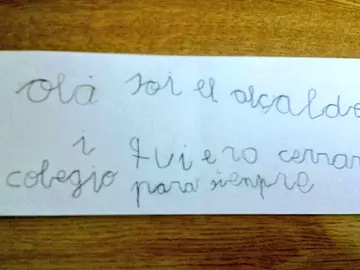 olá soi el alcalde
i quiero cerrar
colegio para sienpre